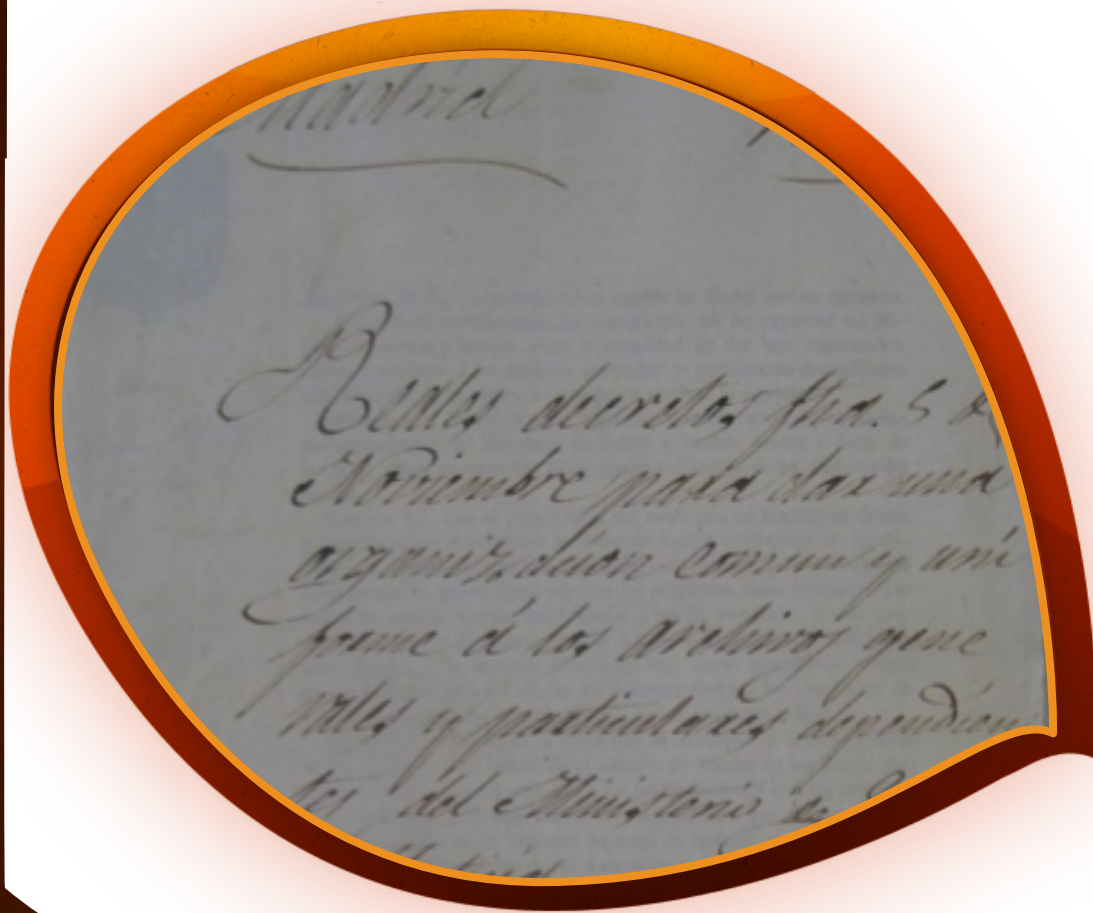 Madrid
Reales decretos fha. 5 de
Noviembre para dar una
organización comun y uni
forme á los archivos gene
rales y particulares dependien
tes del Ministerio de